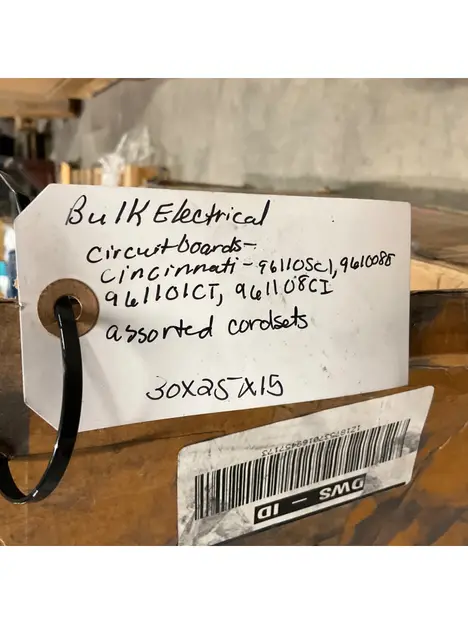 Bulk Electrical
Circuitboards-
Cincinnati-961105CI, 961008E
961101CI, 961108CI
assorted cordsets
30X25X15
DWS - ID